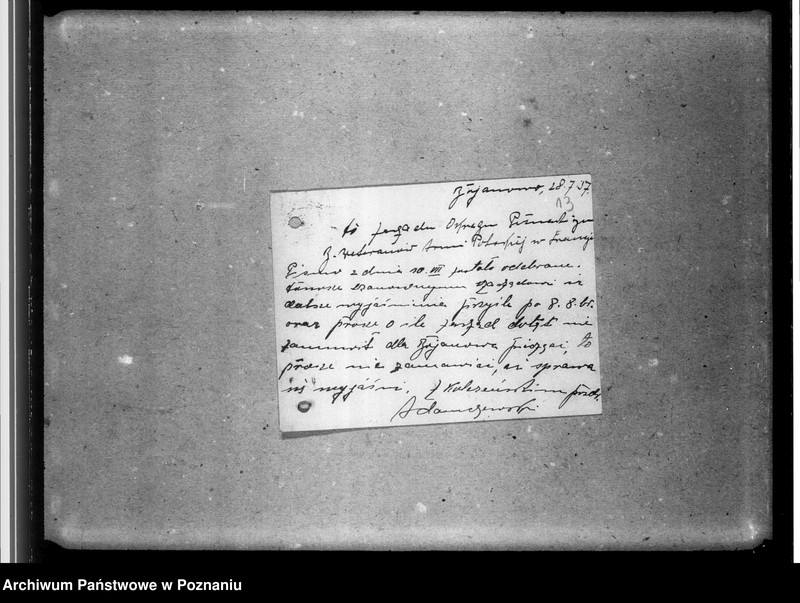 Bojanowo, 28.7.37
13
do Zarządu Okręgu
Z. Weteranów Armii Polskiej w Francji
Pismo z dnia 10. VII zostało odebrane.
Szanownemu Zarządowi iż
dalsze wyjaśnienie prześle po 8.8. br.
oraz proszę o ile Zarząd dotąd nie
zamówił dla Bojanowa pieczęci, to
proszę nie zamawiać, aż sprawa
się wyjaśni. Z Koleżeńskiem pozdr.
Adamczewski
Archiwum Państwowe w Poznaniu